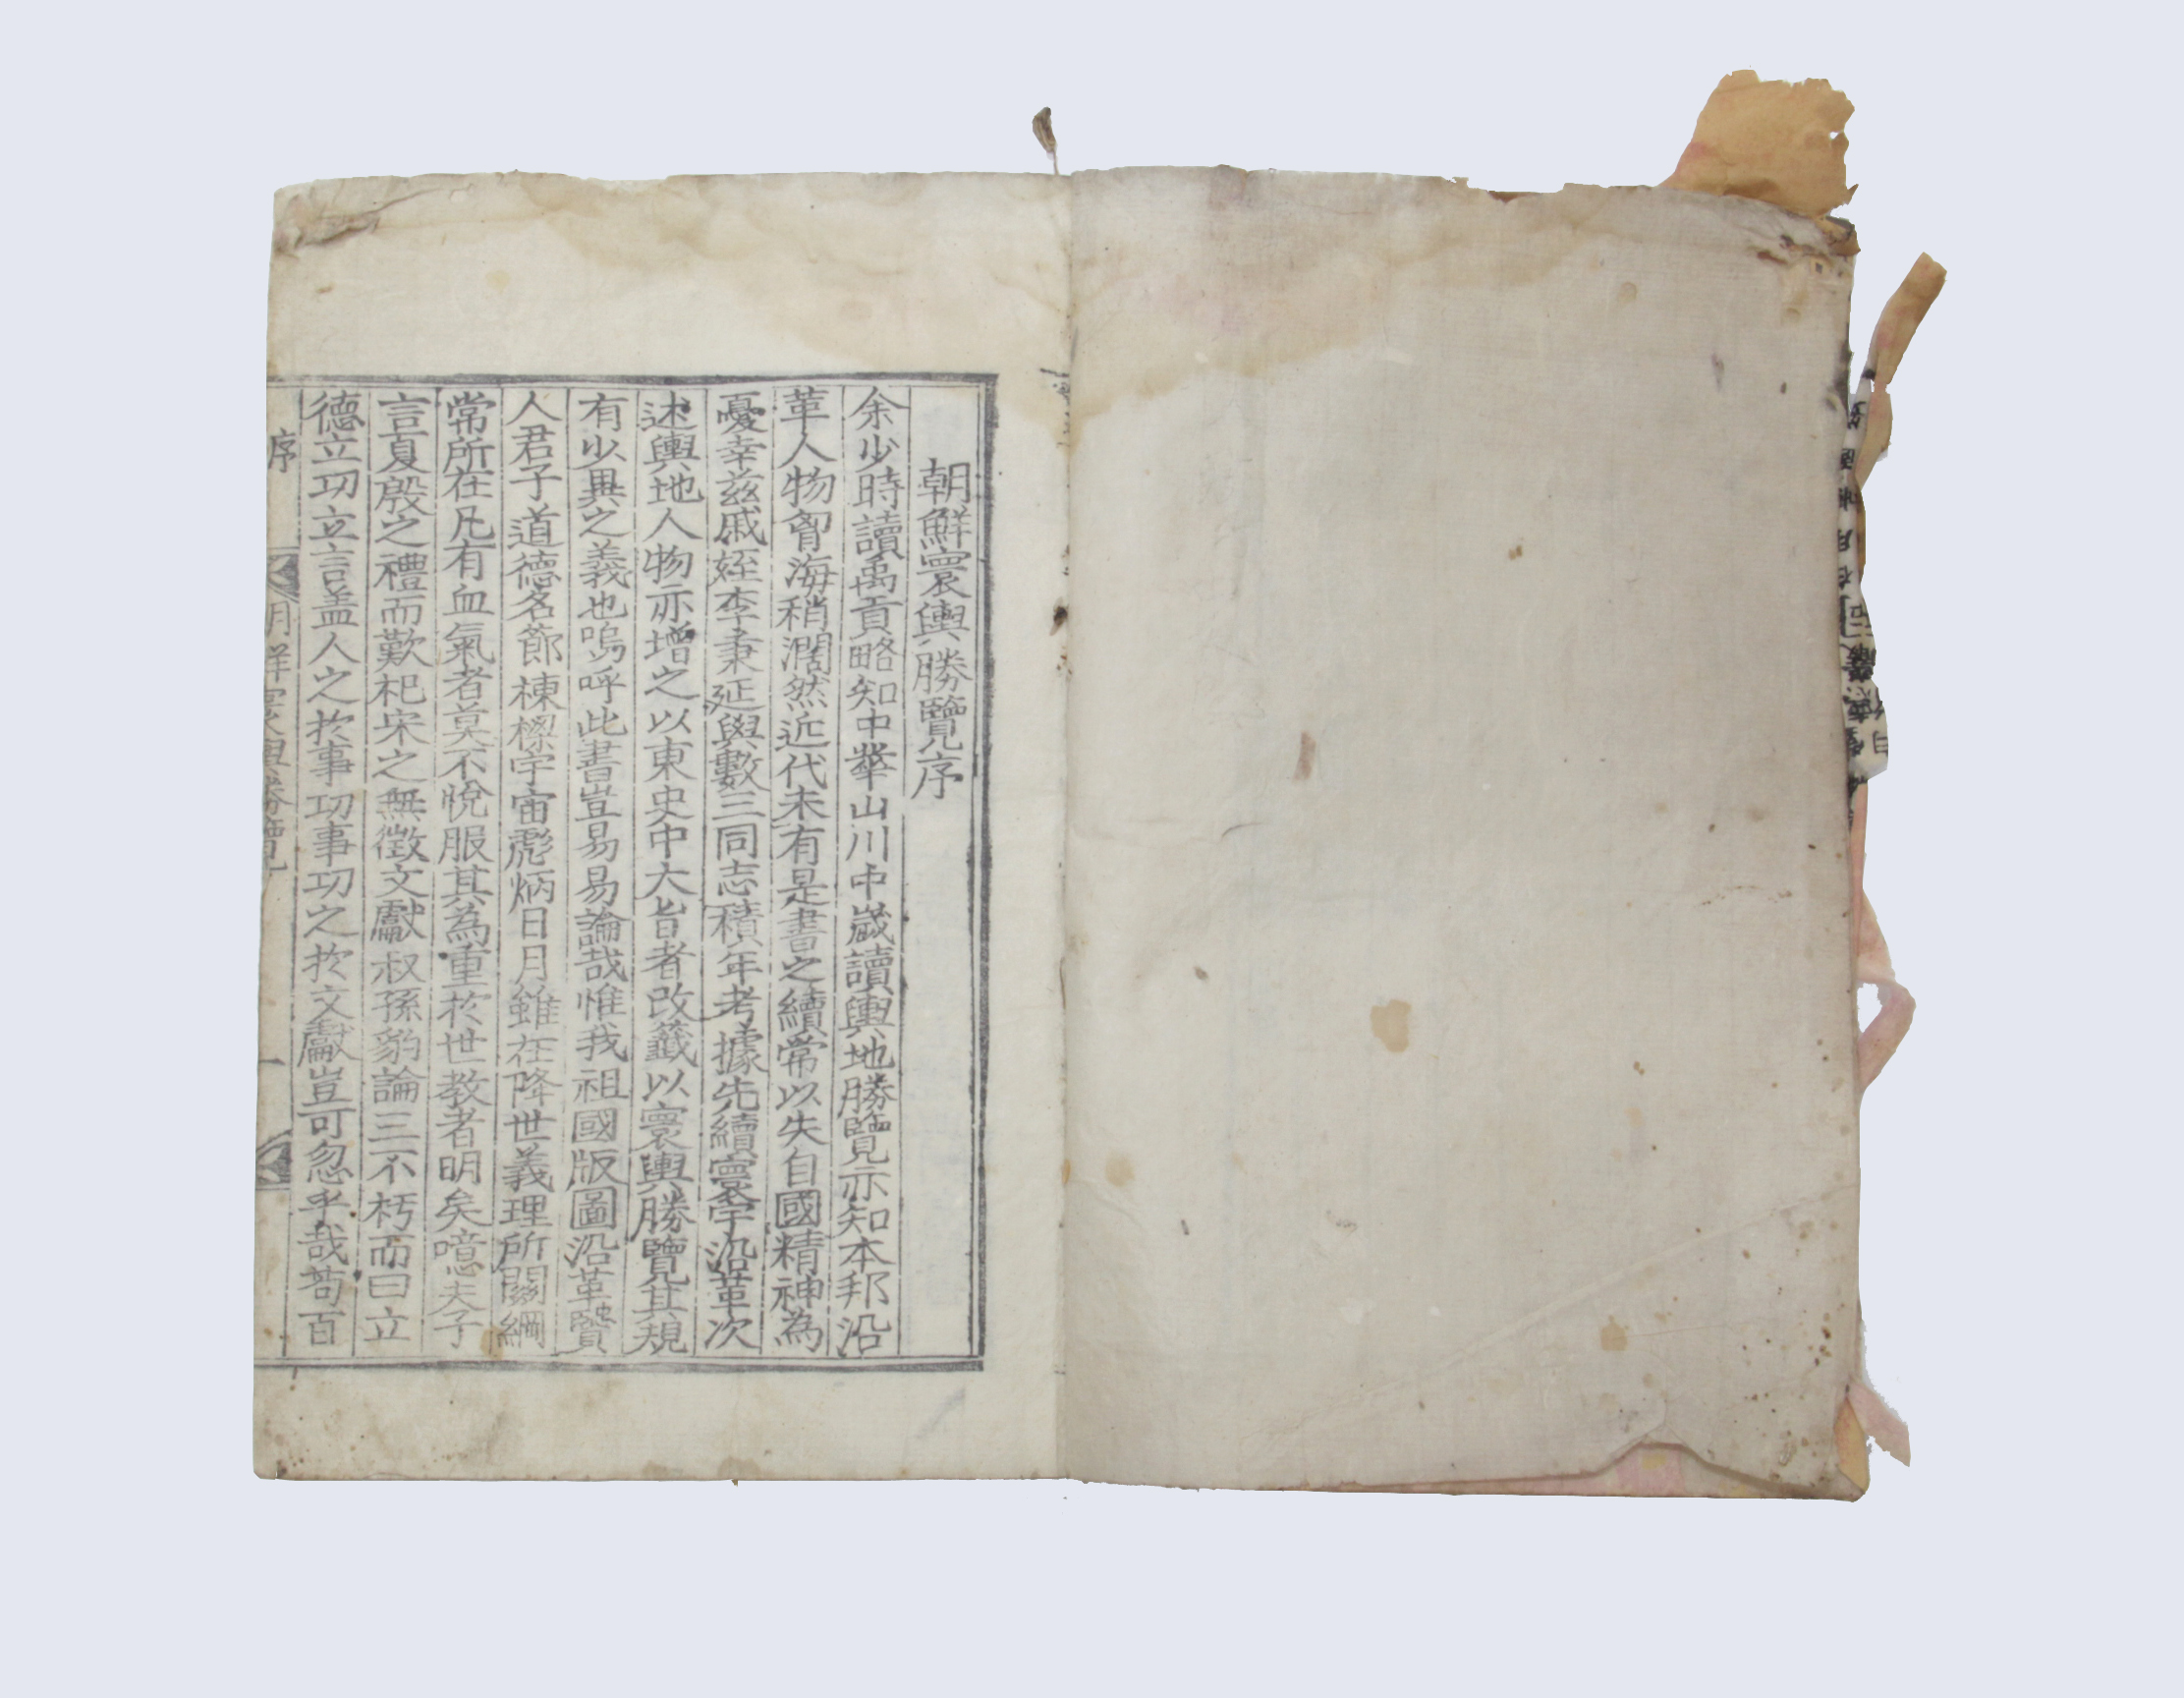 朝鮮寰輿勝覽序
余少時讀禹貢略知中華山川中歲讀輿地勝覽亦知本邦沿
革人物眢海稍濶然近代未有是書之續常以失自國精神為
憂幸玆戚姪李秉延與數三同志積年考據先續寰宇沿革次
述輿地人物亦增之以東史中大旨者改籤以寰輿勝覽其規
有少異之義也嗚呼此書豈易易論哉惟我祖國版圖沿革賢
人君子道德名節棟樑宇宙彪炳日月雖在降世義理所關綱
常所在凡有血氣者莫不悅服其為重於世教者明矣噫夫子
言夏殷之禮而歎杞宋之無徵文獻叔孫豹論三不朽而曰立
德立功立言盖人之於事功事功之於文獻豈可忽乎哉苟百
序 朝鮮寰輿勝覽 一